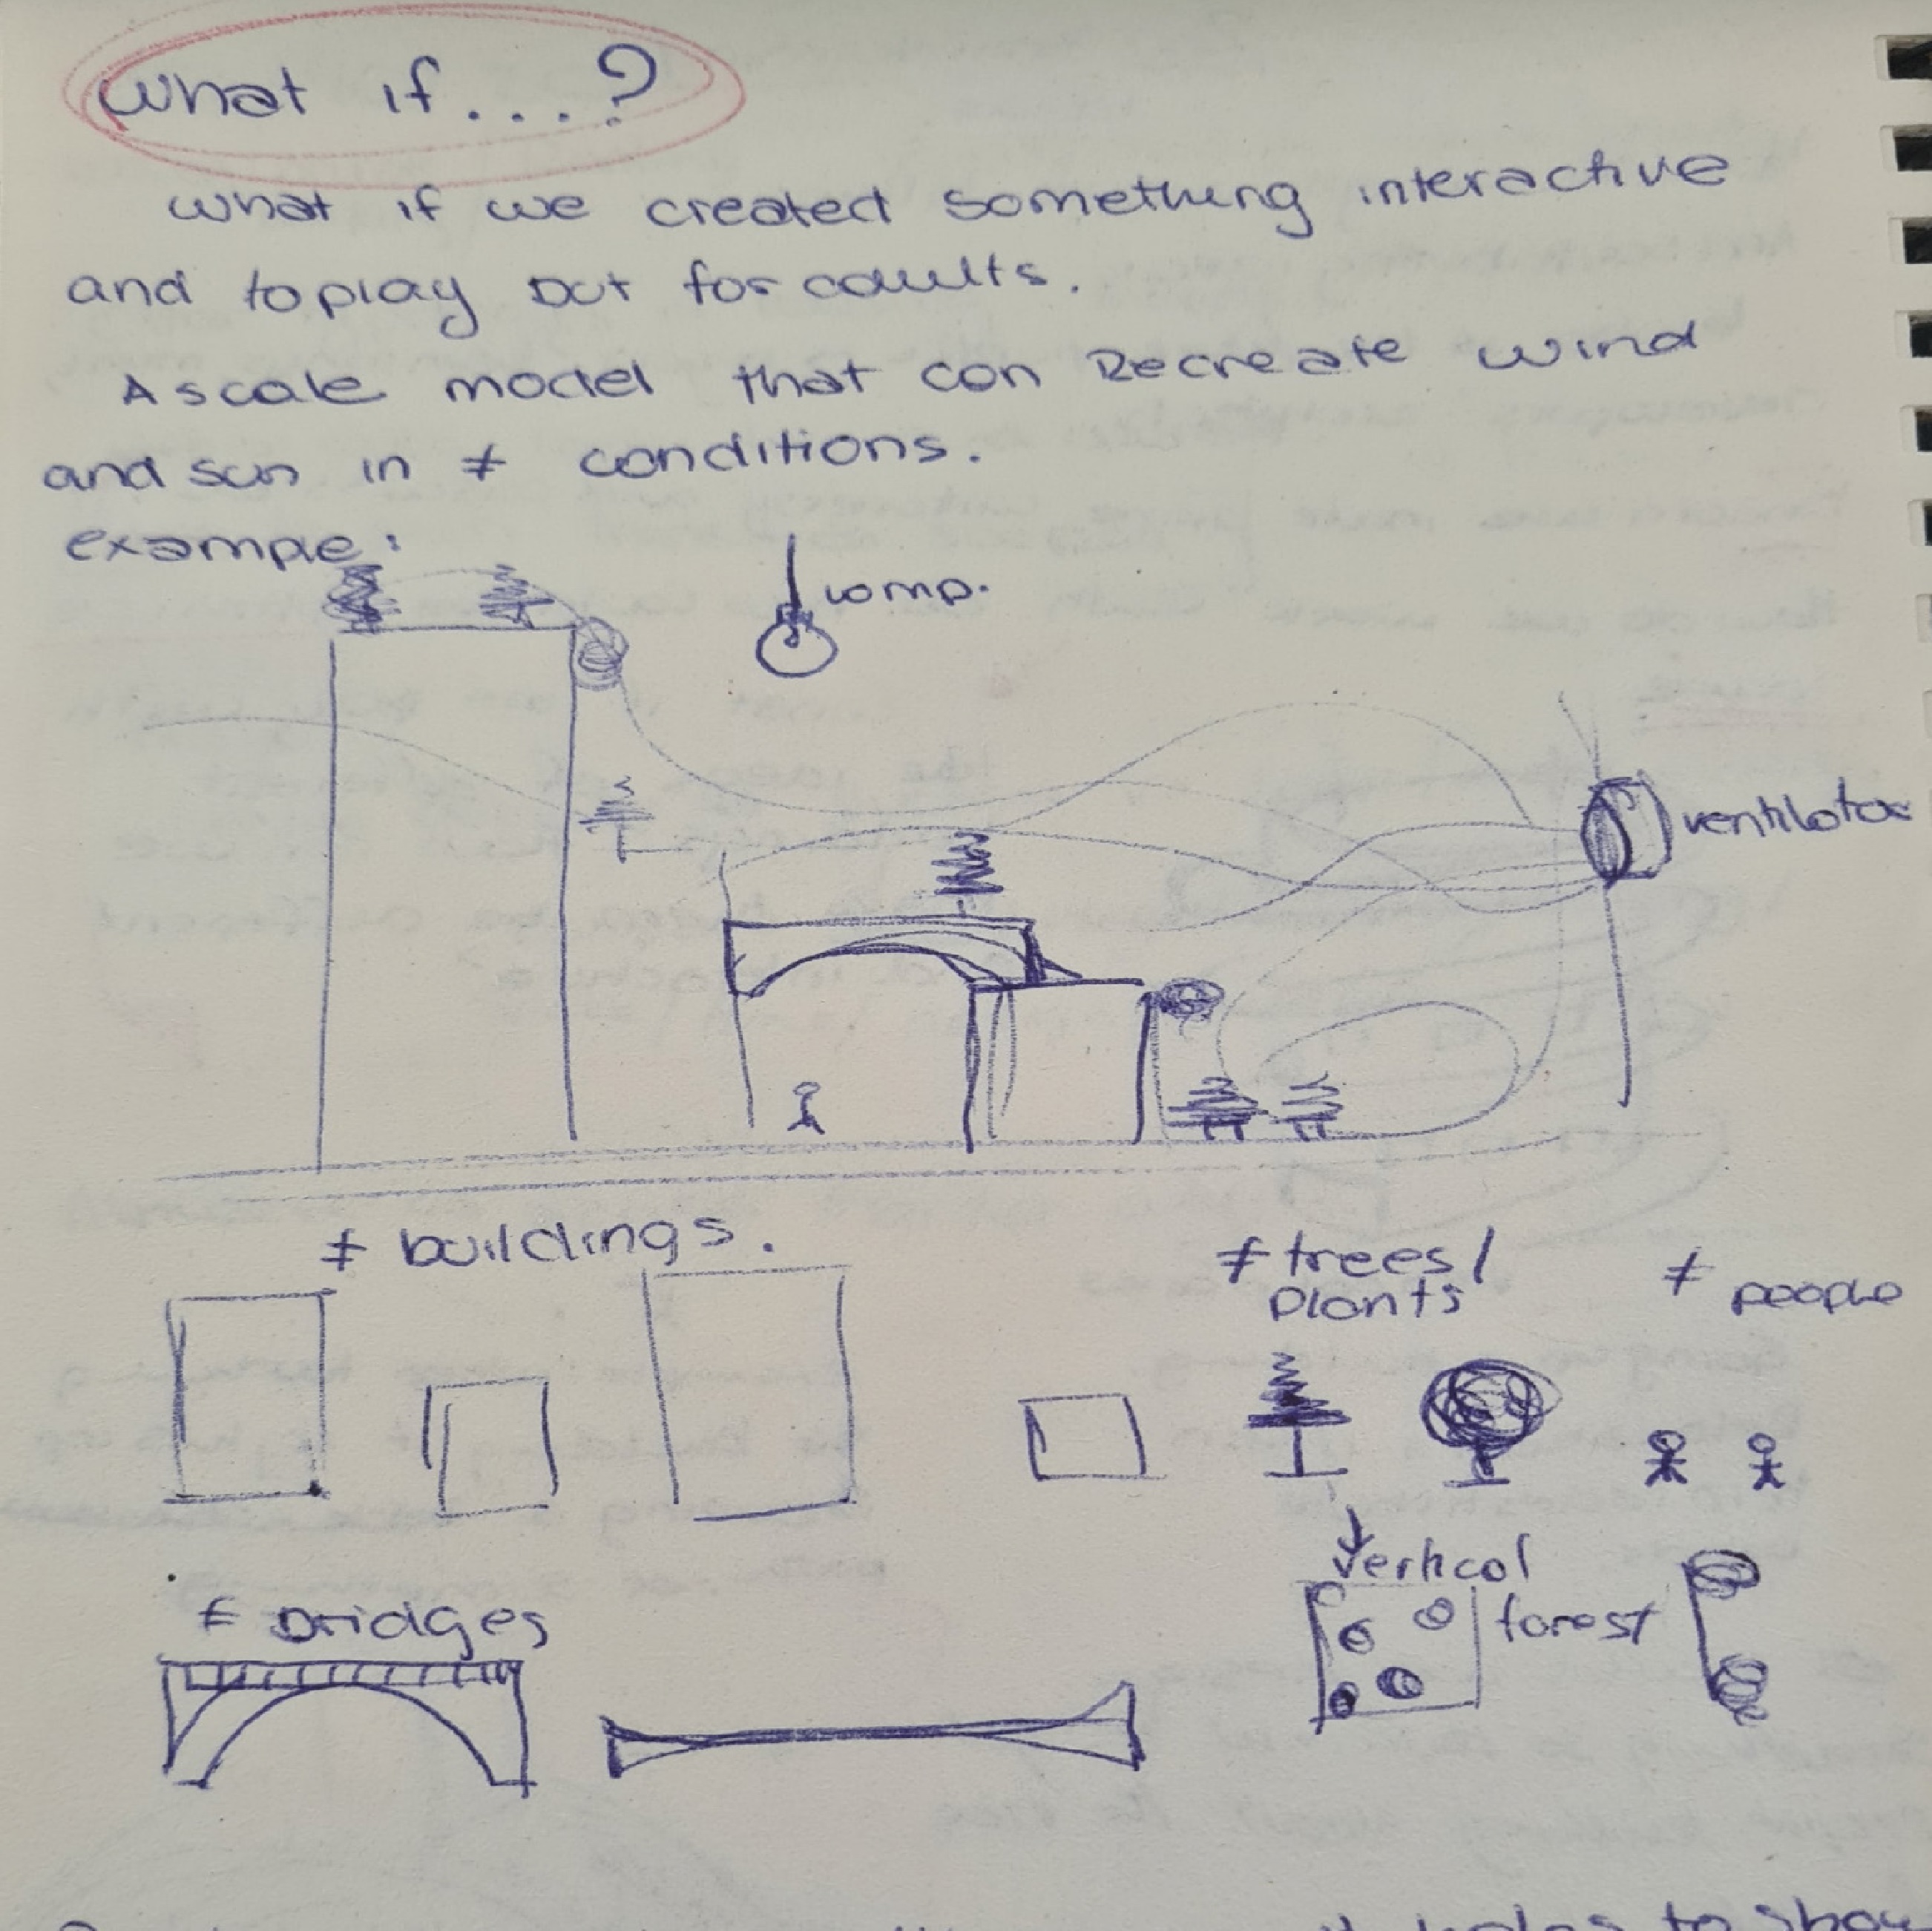 what if...?
what if we created something interactive
and to play but for adults.
A scale model that can Recreate wind
and sun in ≠ conditions.
example:
lamp.
ventilator
≠ buildings.
≠ trees/
plants
≠ people
vertical
forest
≠ Bridges
holes to show